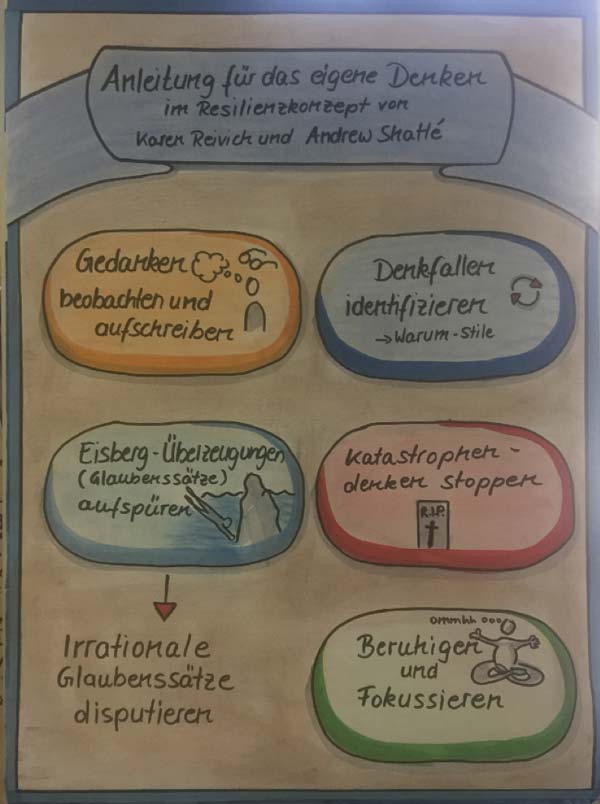 Anleitung für das eigene Denken
im Resilienzkonzept von
Karen Reivich und Andrew Shatté
Gedanken
beobachten und
aufschreiben
Denkfallen
identifizieren
→ Warum-Stile
Eisberg-Überzeugungen
(Glaubenssätze)
aufspüren
Katastrophen-
denken stoppen
R.I.P.
Irrationale
Glaubenssätze
disputieren
ommhh ooo
Beruhigen
und
Fokussieren